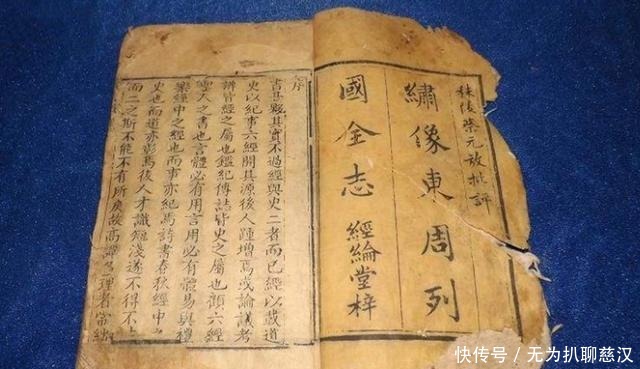 秣陵蔡元放批評
繡像東周列
國全志 經綸堂梓
序
書夥其實不過經與史二者而已經以載道
史以紀事六經開其源後人踵增焉或論議考
辨皆經之屬也鑑紀傳誌皆史之屬也顧六經
聖人之書也言體必有用言用必有體易與禮
樂經中之經也而事亦紀焉詩書春秋經中之
史也而道亦彰焉後人才識短淺遂不得不
而二之斯不能不有所戾故高譚名理者常絀
快传号/无为扒聊慈汉